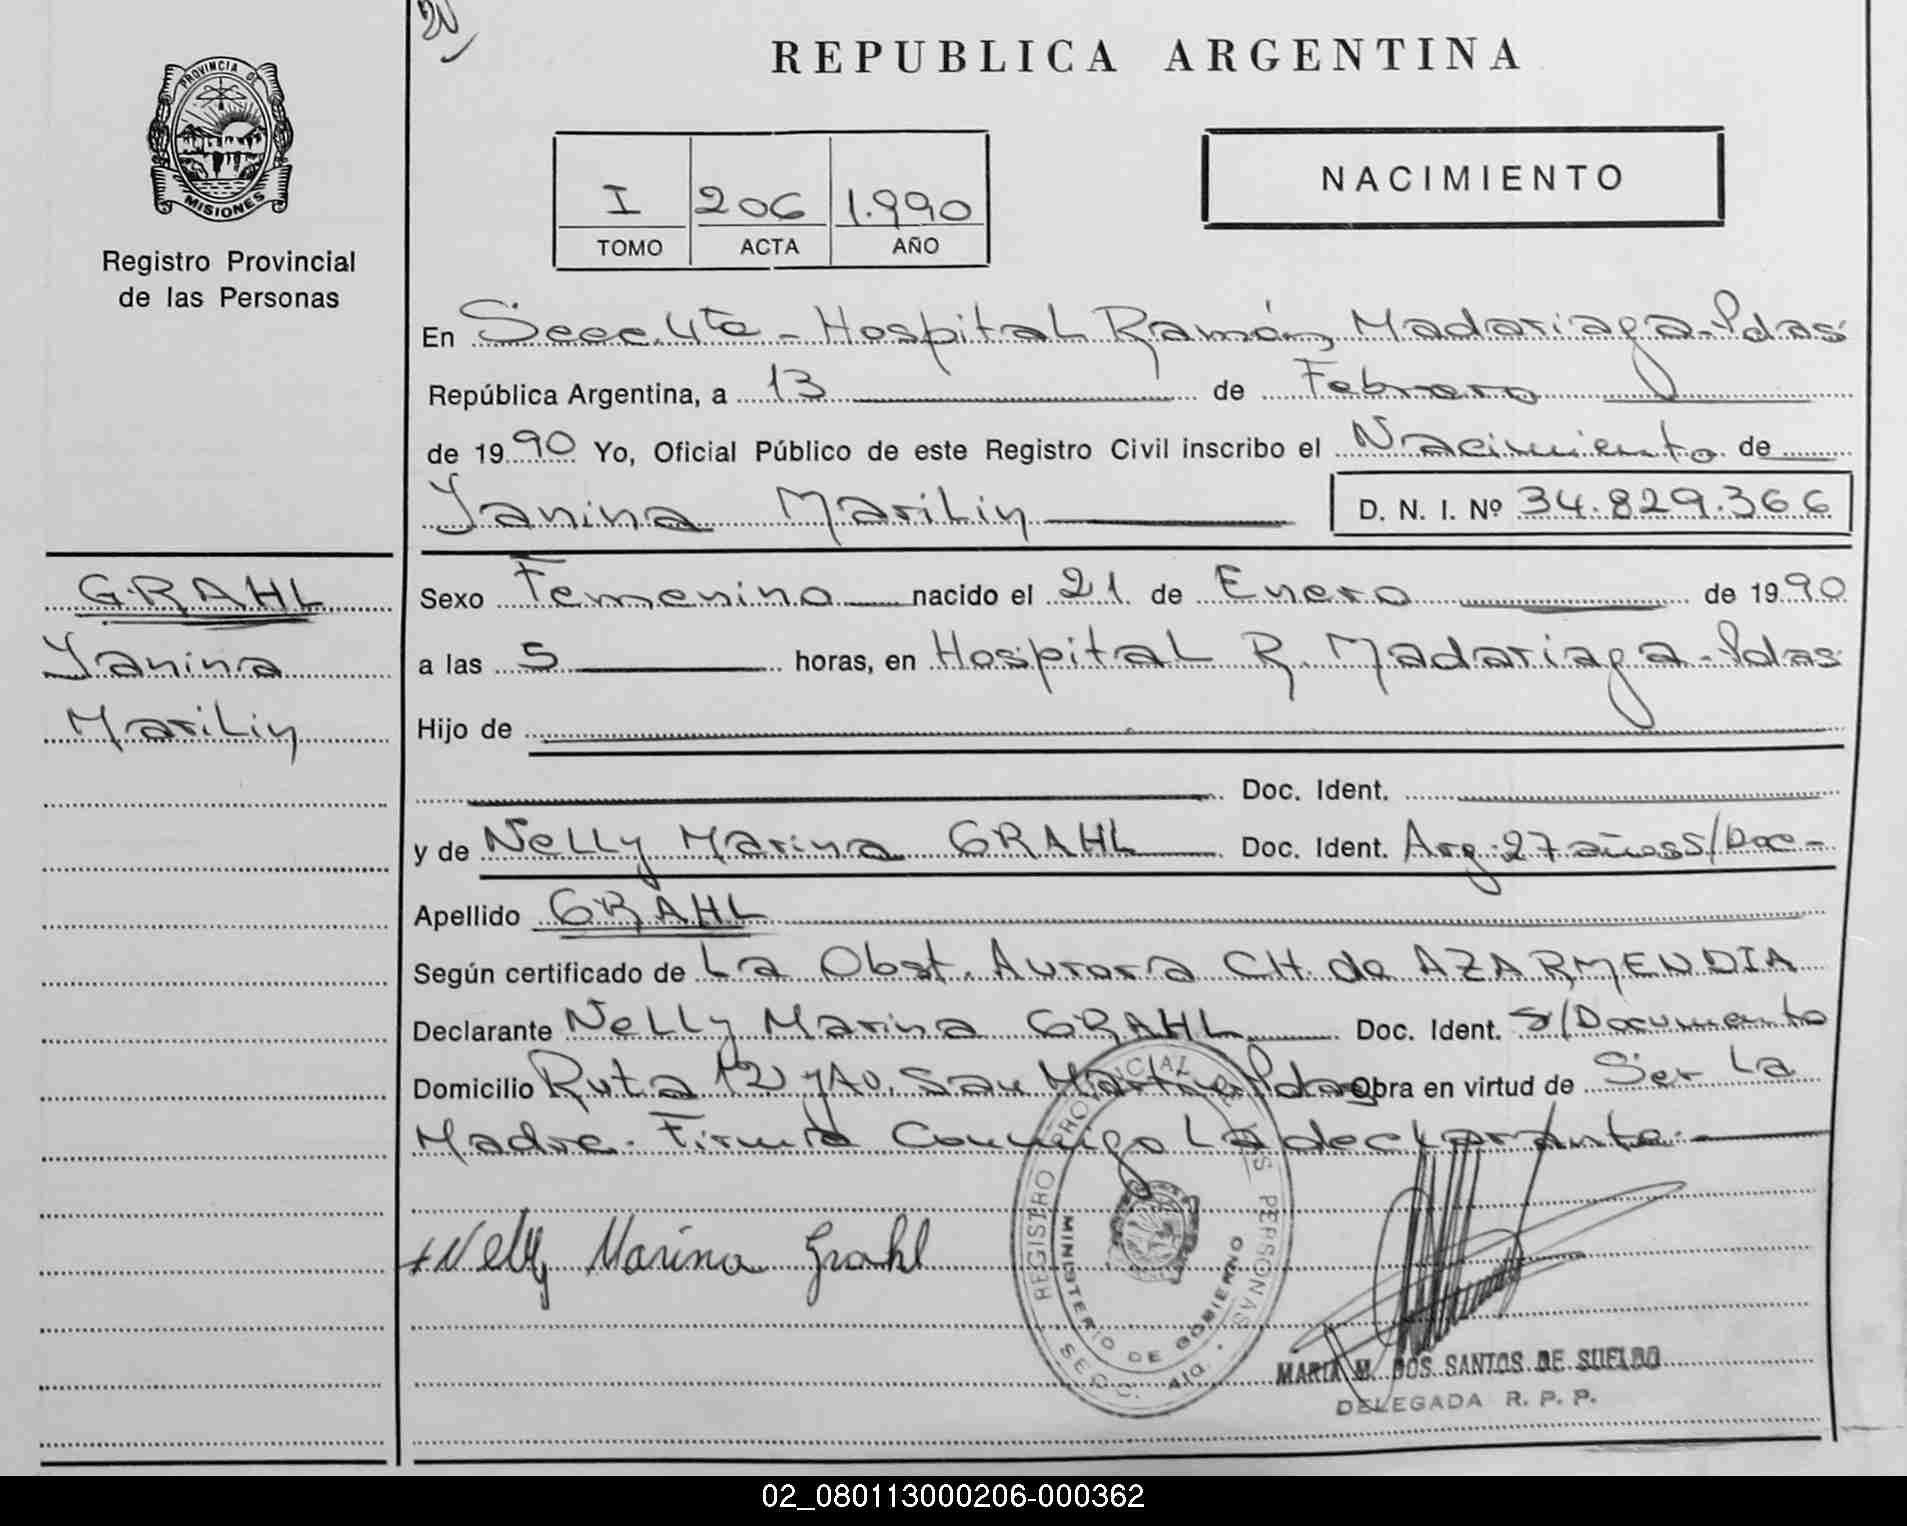 20
PROVINCIA DE
MISIONES
Registro Provincial
de las Personas
REPUBLICA ARGENTINA
I 206 1.990
TOMO ACTA AÑO
NACIMIENTO
En Secc. 4ta - Hospital Ramón Madariaga - Pdas
República Argentina, a 13 de Febrero
de 1990 Yo, Oficial Público de este Registro Civil inscribo el Nacimiento de
Yanina Marilin D. N. I. Nº 34.829.366
GRAHL
Yanina
Marilin
Sexo Femenino nacido el 21 de Enero de 1990
a las 5 horas, en Hospital R. Madariaga - Pdas
Hijo de
Doc. Ident.
y de Nelly Marina GRAHL Doc. Ident. Arg. 27 años S/Doc -
Apellido GRAHL
Según certificado de La Obst. Aurora CH. de AZARMENDIA
Declarante Nelly Marina GRAHL Doc. Ident. S/Documento
Domicilio Ruta 12 y Av. San Martin Pdas Obra en virtud de Ser La
Madre. Firma Conmigo La declarante. -
Nelly Marina Grahl
REGISTRO PROVINCIAL DE LAS PERSONAS
MINISTERIO DE GOBIERNO
SECC. 4ta.
MARIA M. DOS SANTOS DE SUELDO
DELEGADA R. P. P.
02_080113000206-000362